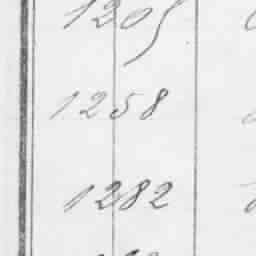 1205
1258
1282